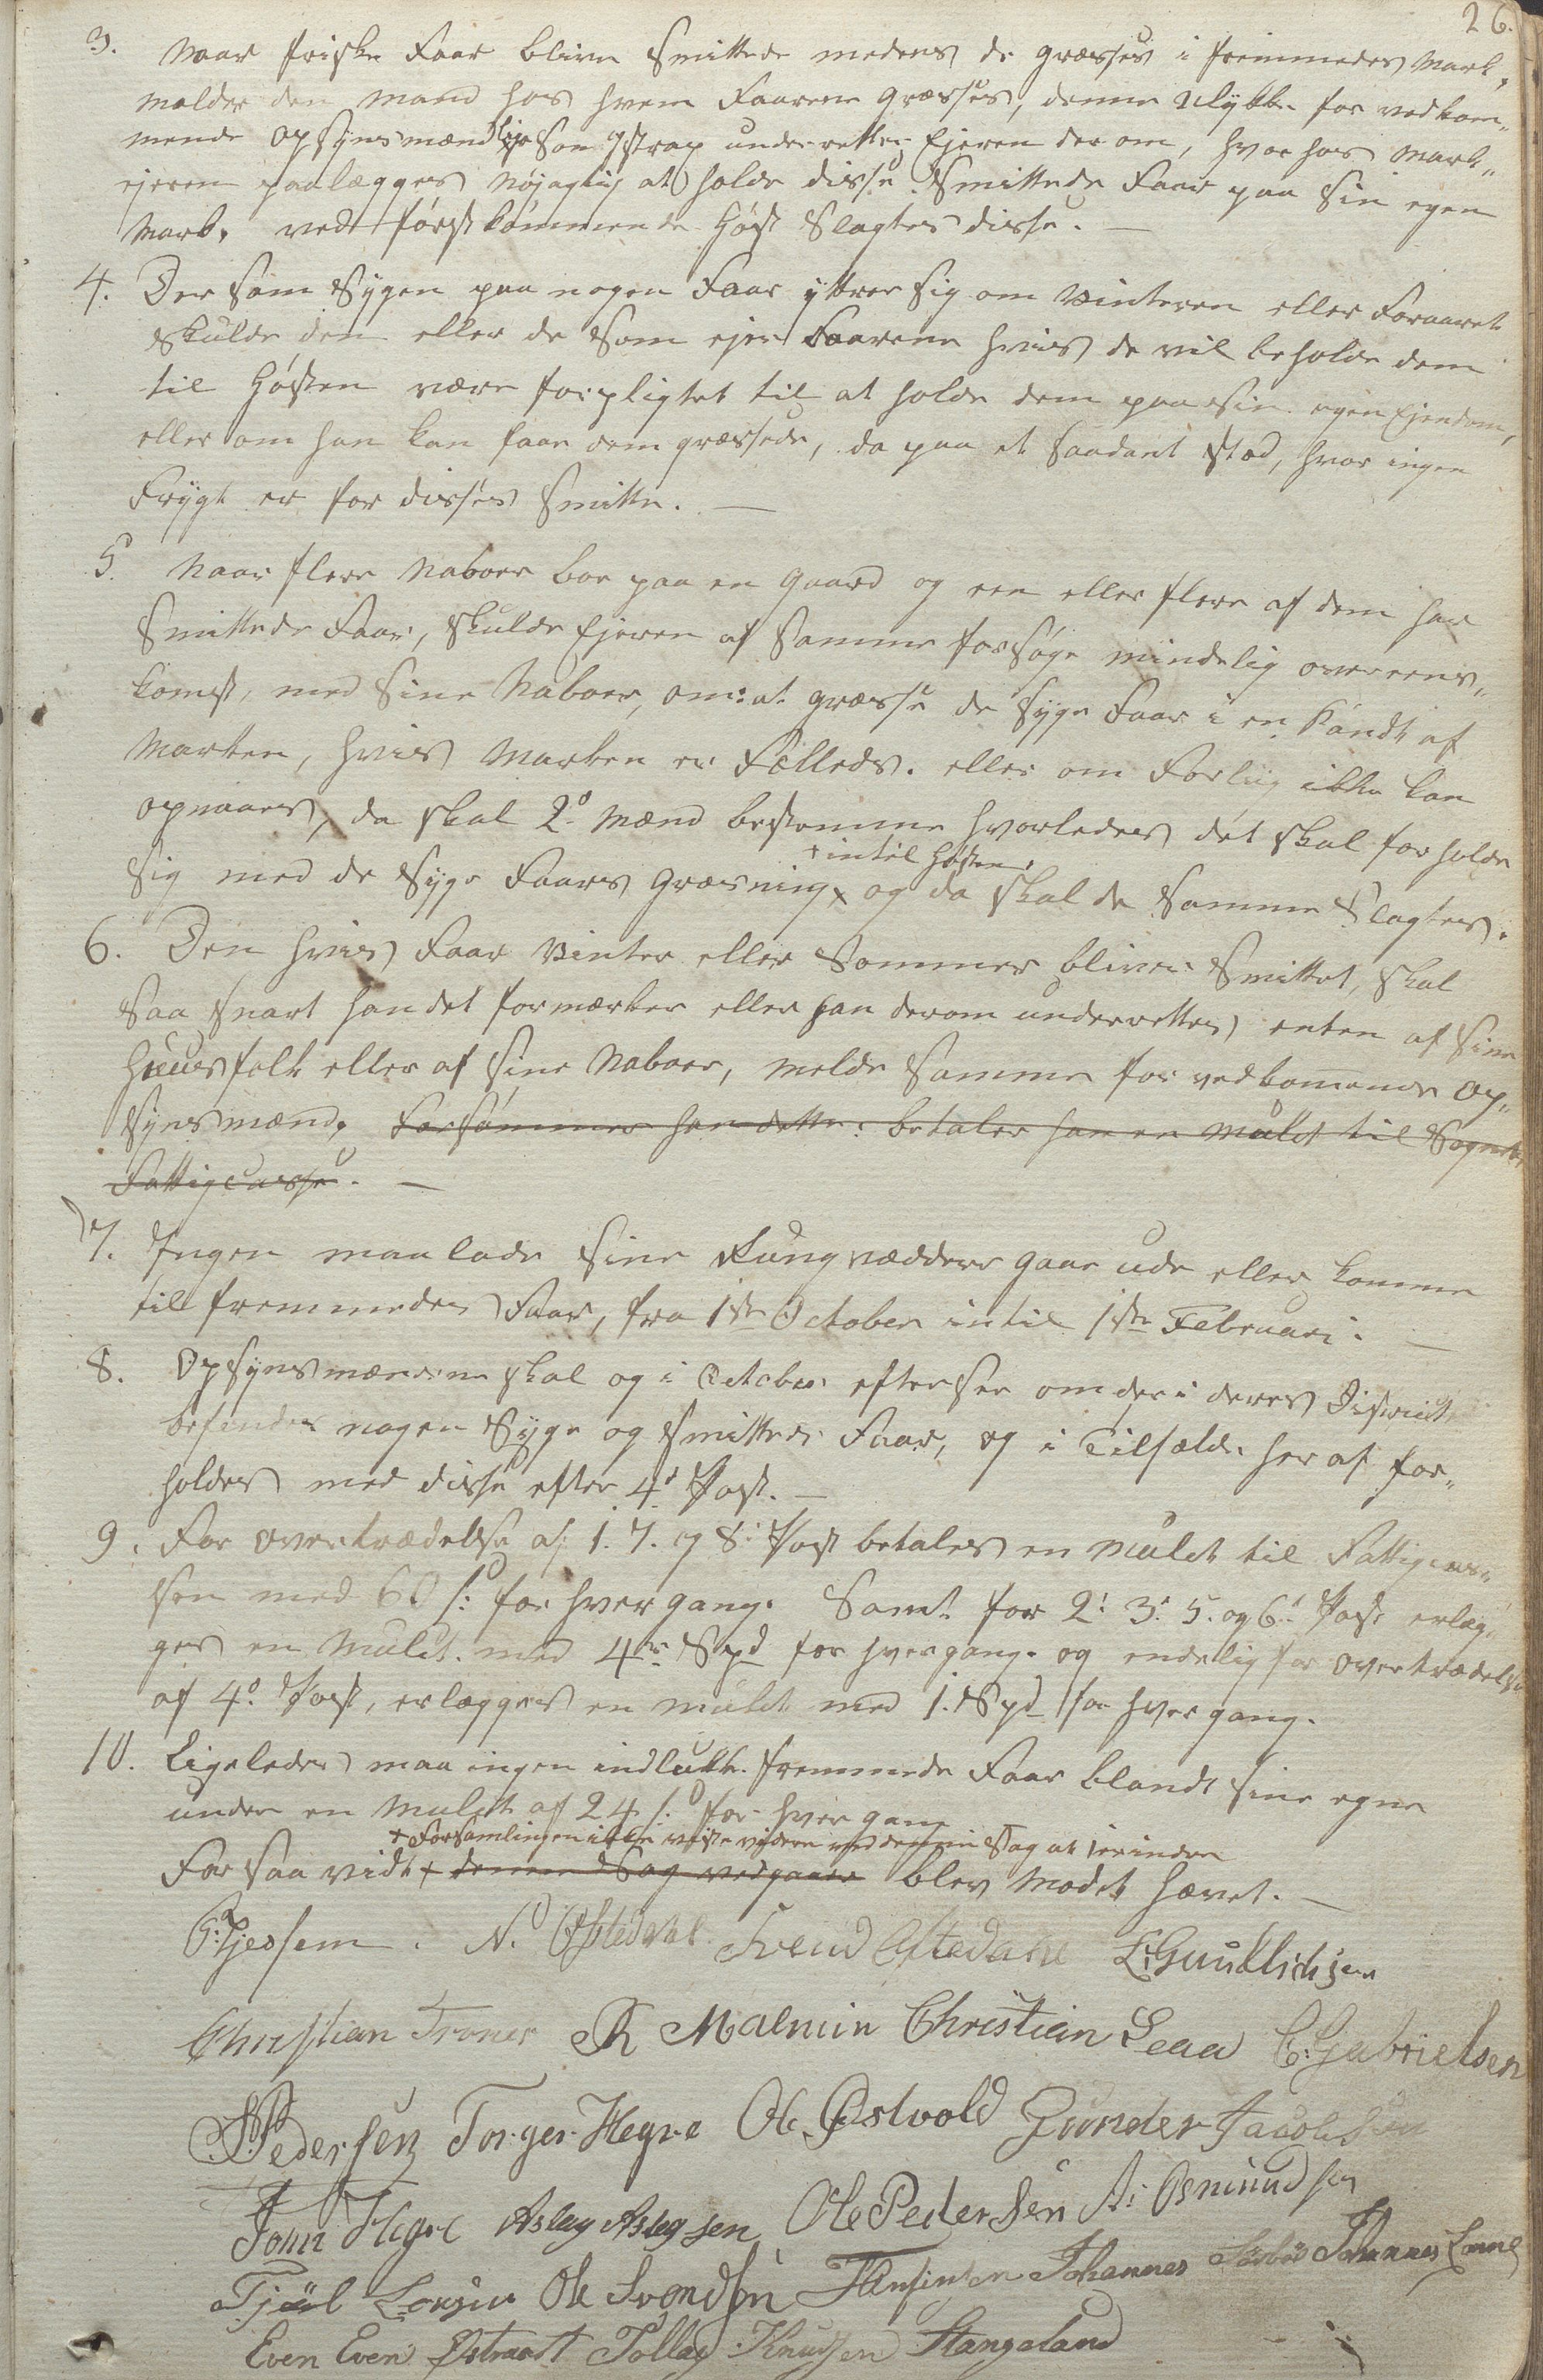 26.
3. Naar friske Faar blive smittede medens de græsses i fremmedes Mark,
melder den Mand hos hvem Faarene græsses, denne Ulykke for vedkom„
mende Opsynsmænd som Ystrap underretter Ejeren der om, hvor hos Mark„
ejeren paalægges nøjagtig at holde disse smittede Faar paa sin egen
Mark, ved førstkommende Høst slagtes disse. —
4. Der som Sygen paa nogen Faar yttrer sig om Vinteren eller Foraaret
skulde den eller de som ejer Faarene hvis de vil beholde dem
til Høsten være forpligtet til at holde dem paa sin egen Ejendom,
eller om han kan faae dem græssede, da paa et saadant stæd, hvor ingen
Frygt er for disses Smitte. —
5. Naar flere Naboer boe paa en Gaard og een eller flere af dem har
smittede Faar, skulde Ejeren af samme forsøge mindelig overeens„
komst, med sine Naboer, om at græsse de syge Faar i en Kandt af
Marken, hvis Marken er Fælleds. eller om Forliig ikke kan
opnaaes, da skal 2de Mænd bestemme hvorledes det skal forholde
+ intil Høsten,
sig med de syge Faars Græsning + og da skal de samme slagtes.
6. Den hvis Faar Vinter eller Sommer bliver smittet, skal
saa snart han det formærker eller han derom underrettes enten af sine
Huusfolk eller af sine Naboer, melde samme for vedkomende Op„
synsmænd, Forsømmer han dette: betaler han en Mulct til Sognets
Fattigcasse. —
7. Ingen maa lade sine Rungvæddere gaae ude eller komme
til fremmedes Faar, fra 1ste October intil 1ste Februari. —
8. Opsynsmændene skal og i October efterser om der i deres District
befindes nogen Syge og smittede Faar, og i Tilfælde her af for„
holdes med disse efter 4de Post. —
9. For overtrædelse af 1. 7. og 8: Post betales en Mulct til Fattigcas„
sen med 60 s: for hver gang. Samt for 2: 3: 5. og 6te Post erlæg„
ges en Mulct med 4re Spd for hver gang. og endelig for overtrædelse
af 4de Post, erlægges en mulct med 1. Spd for hver gang.
10. Ligeledes maa ingen indlukke fremmede Faar blandt sine egne
under en Mulct af 24 s: for hver gang
+ Forsamlingen ikke viste videre ved denne Sag at ierindre
For saa vidt + denne Sag vedgaaer blev Modet hævet. —
G. Tjessem. N. Oftedahl Svend Oftedahl L. Guullichsen
Christian Trones R Malmin Christian Leaa C. Gabrielsen
S. Pedersen Torger Hegre Ole Østvold Gunder Jacobsen
John Hegre Aslag Aslagsen Ole Pedersen A: Osmundsen
Tjøl Ole Svendsen Johannes Sørbøe Johannes
Even Even Østraadt Tollag Knudsen Stangeland